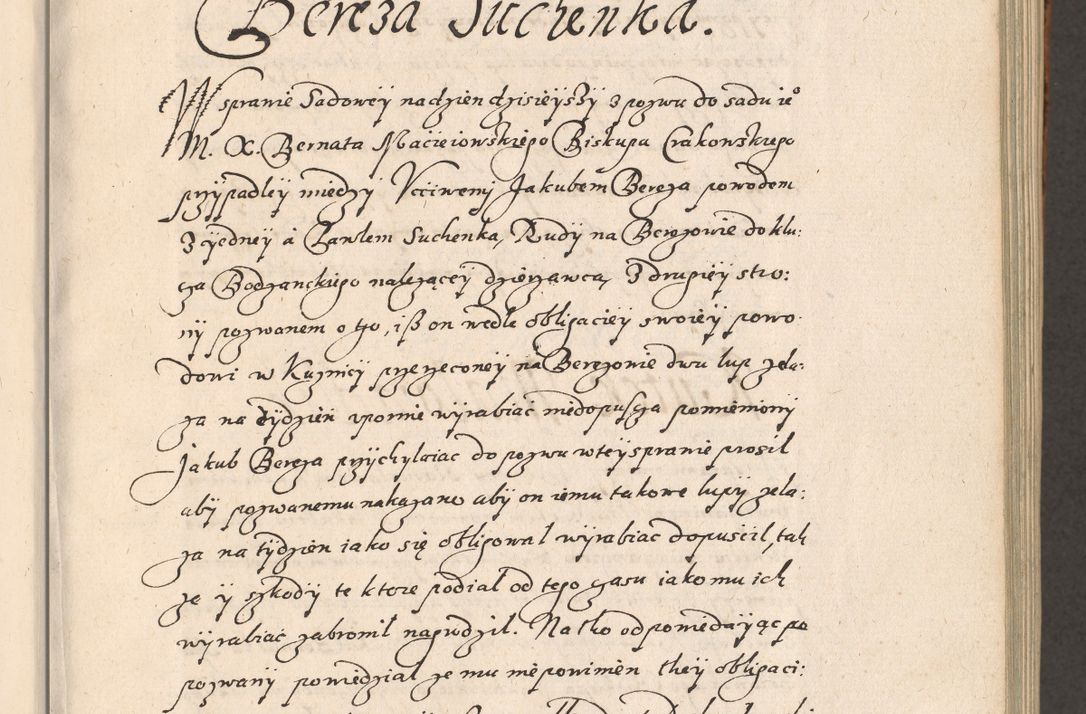 Bereza Suchenka.
W sprawie Sadowey na dzien dzisieyszy z pozwu do sadu ie°
M. X. Bernata Macieiowskiego Biskupa Crakowskiego
przypadley miedzy Vcciwemi Jakubem Bereza powodem
Z iedney a Pawlem Suchenka, Rudy na Berezowie do klu:
cza Bodzanckiego nalezącey dzierzawca, Z drugiey stro:
ny pozwanem o to, iß on wedle obligaciey swoiey powo:
dowi w Kuznicy przerzeconey na Berezowie dwu lup zela:
za na tydzien vpornie wyrabiać niedopuscza pomieniony
Jakub Bereza przychylaiac do pozwu w tey sprawie prosil
aby pozwanemu nakazano aby on iemu takowe lupy zela:
za na tydzien iako się obligowal wyrabiac dopuscil, tak
ze y szkody te ktore podial od tego czasu iako mu ich
wyrabiac zabronil nagrodzil. Na tho odpowiedaiąc po
pozwany powiedzial ze mu nie powinien they obligaci: